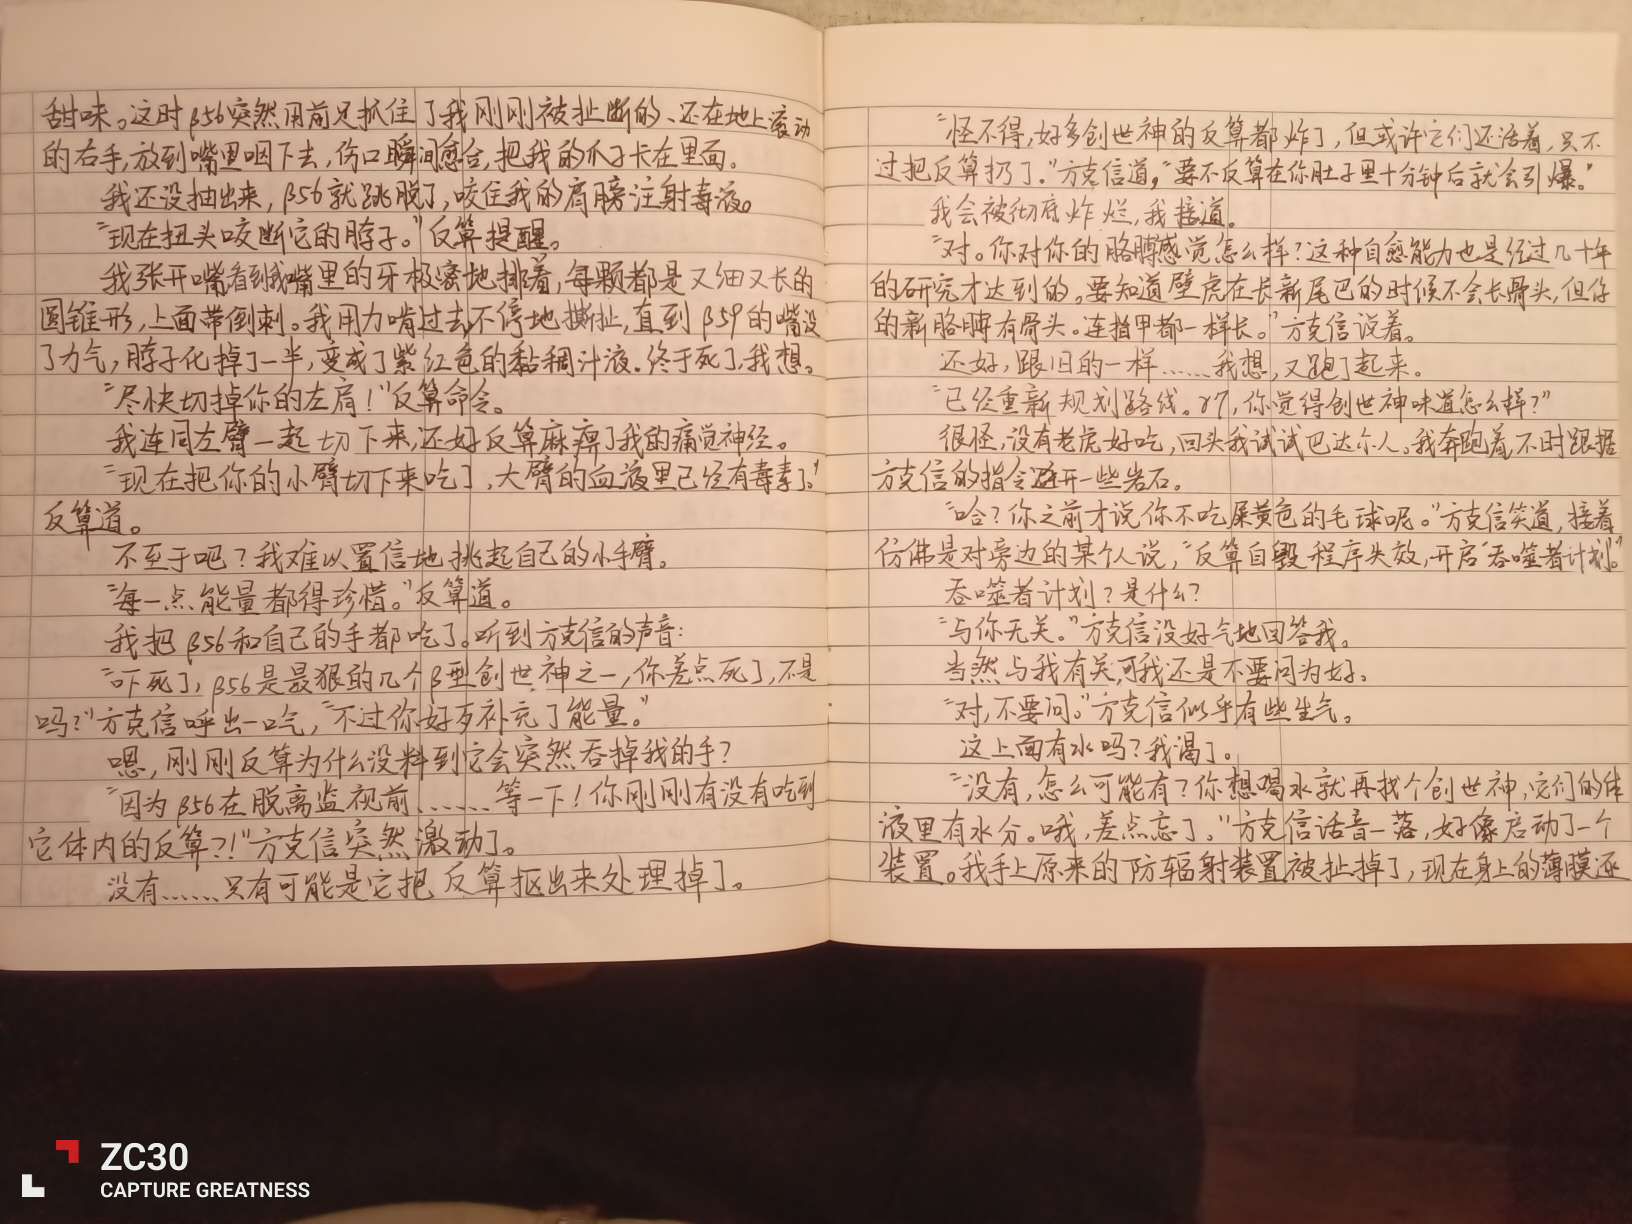 甜味。这时β56突然用前足抓住了我刚刚被扯断的、还在地上滚动
的右手,放到嘴里咽下去,伤口瞬间愈合,把我的爪子卡在里面。
我还没抽出来,β56就跳脱了,咬住我的肩膀注射毒液。
“现在扭头咬断它的脖子。”反算提醒。
我张开嘴看到我嘴里的牙极密地排着,每颗都是又细又长的
圆锥形,上面带倒刺。我用力啃过去,不停地撕扯,直到β59的嘴没
了力气,脖子化掉了一半,变成了紫红色的黏稠汁液。终于死了,我想。
“尽快切掉你的左肩!”反算命令。
我连同左臂一起切下来,还好反算麻痹了我的痛觉神经。
“现在把你的小臂切下来吃了,大臂的血液里已经有毒素了。”
反算道。
不至于吧?我难以置信地挑起自己的小手臂。
“每一点能量都得珍惜。”反算道。
我把β56和自己的手都吃了。听到方克信的声音:
“吓死了,β56是最狠的几个β型创世神之一,你差点死了,不是
吗?”方克信呼出一口气,“不过你好歹补充了能量。”
嗯,刚刚反算为什么没料到它会突然吞掉我的手?
“因为β56在脱离监视前……等一下!你刚刚有没有吃到
它体内的反算?!”方克信突然激动了。
没有……只有可能是它把反算抠出来处理掉了。
“怪不得,好多创世神的反算都炸了,但或许它们还活着,只不
过把反算扔了。”方克信道,“要不反算在你肚子里十分钟后就会引爆。”
我会被彻底炸烂,我接道。
“对。你对你的胳膊感觉怎么样?这种自愈能力也是经过几十年
的研究才达到的。要知道壁虎在长新尾巴的时候不会长骨头,但你
的新胳膊有骨头。连指甲都一样长。”方克信说着。
还好,跟旧的一样……我想,又跑了起来。
“已经重新规划路线。γ7,你觉得创世神味道怎么样?”
很怪,没有老虎好吃,回头我试试巴达尔人。我奔跑着,不时跟据
方克信的指令避开一些岩石。
“哈?你之前才说你不吃屎黄色的毛球呢。”方克信笑道,接着
仿佛是对旁边的某个人说,“反算自毁程序失效,开启‘吞噬者计划’。”
吞噬者计划?是什么?
“与你无关。”方克信没好气地回答我。
当然与我有关,可我还是不要问为好。
“对,不要问。”方克信似乎有些生气。
这上面有水吗?我渴了。
“没有,怎么可能有?你想喝水就再找个创世神,它们的体
液里有水分。哦,差点忘了。”方克信话音一落,好像启动了一个
装置。我手上原来的防辐射装置被扯掉了,现在身上的薄膜还
ZC30
CAPTURE GREATNESS